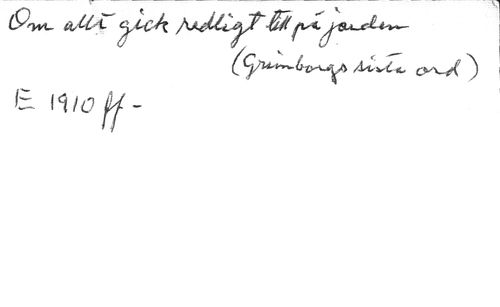 Om allt gick redligt till på jorden
(Grimborgs sista ord)
E 1910 ff -